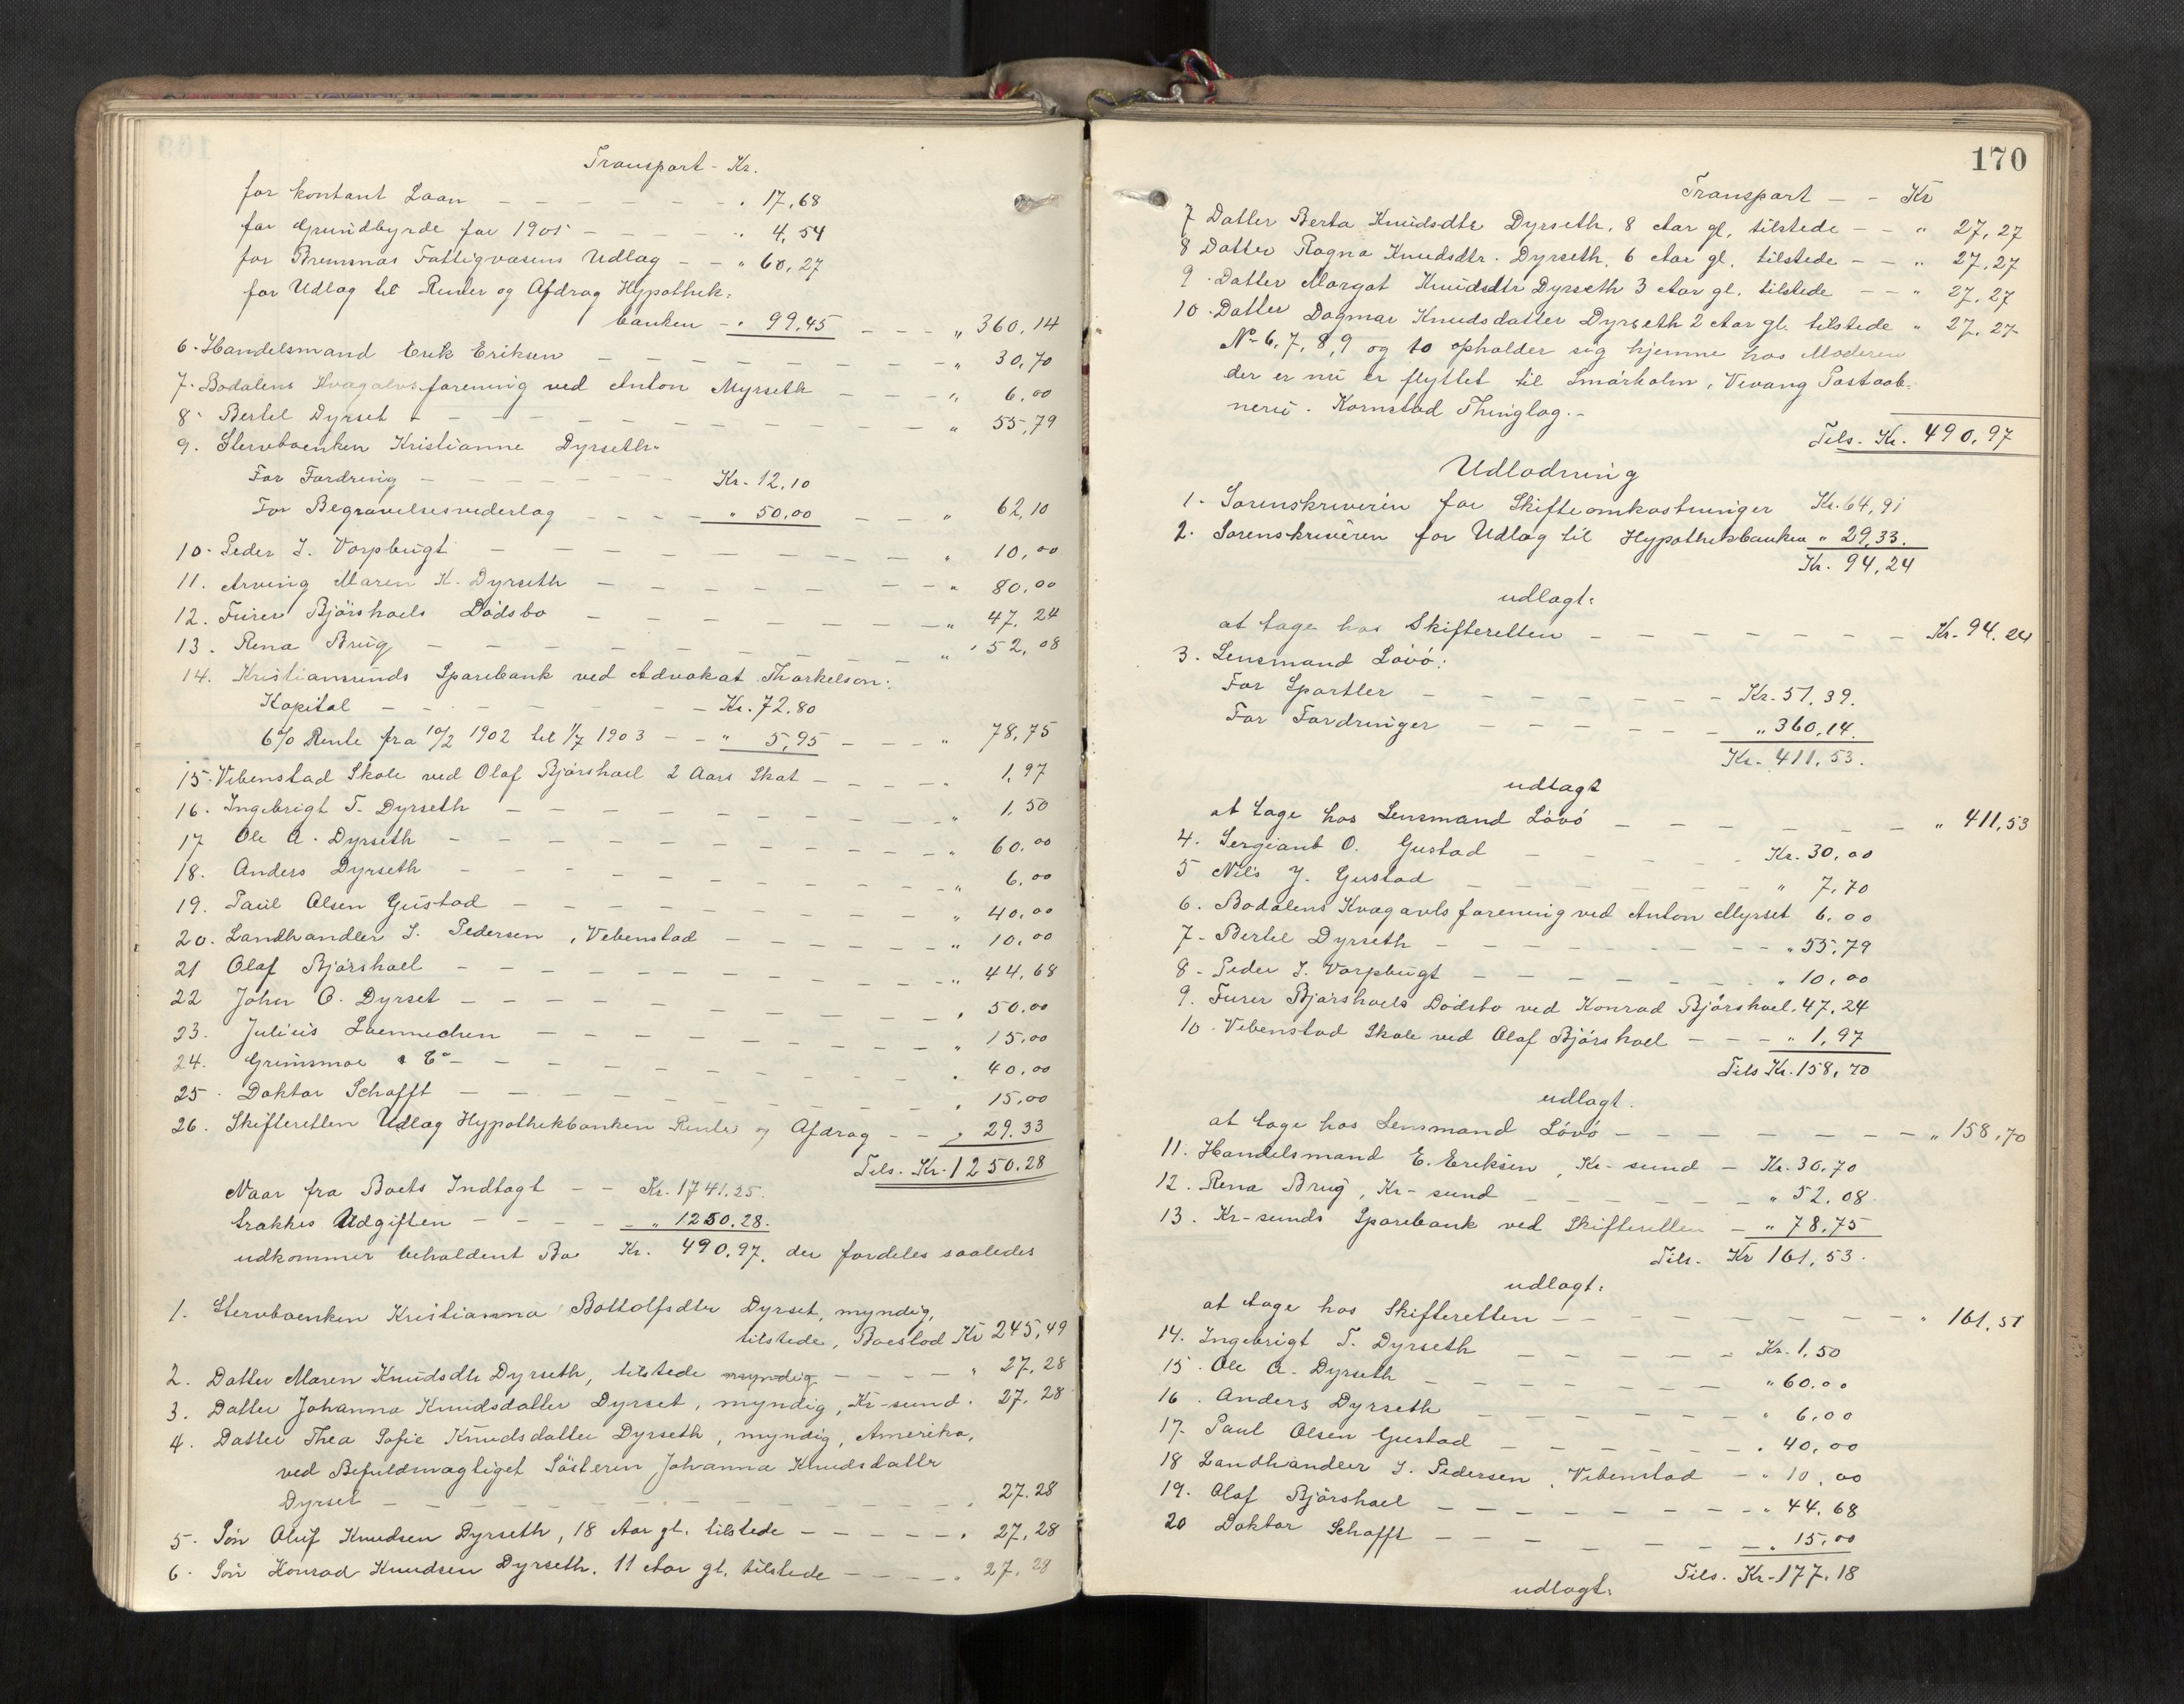 Transport - Kr.
for kontant Laan - - - - - - - " 17,68
for Grundbyrde for 1901 - - - - " 4,54
for Bremsnæs Fattigvæsens Udlæg - - " 60,27
for Udlæg til Renter og Afdrag Hypothek=
banken - " 99,45 - - - " 360,14
6. Handelsmand Erik Eriksen - - - - - - - - " 30,70
7. Bodalens Kvægavlsforening ved Anton Myrseth - - - " 6,00
8. Bertel Dyrset - - - - - - - - - - " 55,79
9. Stervboenken Kristianne Dyrseth
For Fordring - - - - - - - Kr. 12,10
For Begravelsesvederlag - - - - " 50,00 - - " 62,10
10. Peder J. Vorpbugt - - - - - - - - - " 10,00
11. Arving Maren K. Dyrseth - - - - - - " 80,00
12. Furer Bjørshaels Dødsbo - - - - - - - " 47,24
13. Rena Brug - - - - - - - - - - " 52,08
14. Kristiansunds Sparebank ved Advokat Thorkelson:
Kapital - - - - - - - - Kr. 72,80
6% Rente fra 10/2 1902 til 1/7 1903 - - " 5,95 - - - " 78,75
15. Vebenstad Skole ved Olaf Bjørshael 2 Aars Skat - - - - 1,97
16. Ingebrigt T. Dyrseth - - - - - - - - - " 1,50
17 Ole A. Dyrseth - - - - - - - - - - " 60,00
18. Anders Dyrseth - - - - - - - - - - " 6,00
19. Paul Olsen Gustad - - - - - - - - - " 40,00
20. Landhandler J. Pedersen, Vebenstad - - - - - - " 10,00
21 Olaf Bjørshael - - - - - - - - - - " 44,68
22 John O. Dyrset - - - - - - - - - - " 50,00
23. Julius Loennechen - - - - - - - - - " 15,00
24. Grimsmoe & Co - - - - - - - - - " 40,00
25. Doktor Schafft - - - - - - - - - - " 15,00
26. Skifteretten Udlæg Hypothekbanken Renter og Afdrag - - " 29.33
Tils. Kr. 1250.28
Naar fra Boets Indtægt - - Kr. 1741.25.
trækkes Udgiften - - - - " 1250.28.
udkommer beholdent Bo Kr. 490,97. der fordeles saaledes
1. Stervboenken Kristianna Bottolfsdtr Dyrset, myndig,
tilstede, Boeslod Kr 245,49
2. Datter Maren Knudsdtr Dyrseth, tilstede myndig - - - - " 27,28
3. Datter Johanna Knudsdatter Dyrset, myndig, Kr-sund. 27,28
4. Datter Thea Sofie Knudsdatter Dyrseth, myndig, Amerika,
ved Befuldmægtiget Søsteren Johanna Knudsdattr
Dyrset - - - - - - - - - - - - . 27.28
5. Søn Oluf Knudsen Dyrseth, 18 Aar gl. tilstede - - - - - . 27,28
6. Søn Konrad Knudsen Dyrseth. 11 Aar gl. tilstede - - - - . 27.28
170
Transport - - Kr
7 Datter Berta Knudsdtr Dyrseth, 8 Aar gl, tilstede - - " 27,27
8 Datter Ragna Knudsdtr. Dyrseth. 6 Aar gl. tilstede - - " 27.27
9. Datter Margot Knudsdtr Dyrseth 3 Aar gl. tilstede - - " 27,27
10. Datter Dagmar Knudsdatter Dyrseth 2 Aar gl. tilstede " 27,27
No 6, 7, 8, 9 og 10 opholder sig hjemme hos Moderen
der er nu er flyttet til Smørholm, Vevang Postaab=
neri. Kornstad Thinglag. -
Tils. Kr. 490,97
Udlodning
1. Sorenskriveren for Skifteomkostninger Kr. 64,91
2. Sorenskriveren for Udlæg til Hypothekbanken " 29,33.
Kr. 94,24
udlagt:
at tage hos Skifteretten - - - - - - - - Kr. 94.24
3. Lensmand Løvø:
For Sportler - - - - - - - Kr. 51,39.
For Fordringer - - - - - - " 360,14.
Kr. 411,53.
udlagt
at tage hos Lensmand Løvø - - - - - - - " 411,53
4. Sergiant O. Gustad - - - - . Kr. 30,00
5 Nils J. Gustad - - - - - - - " 7,70
6. Bodalens Kvægavlsforening ved Anton Myrset 6,00
7. Bertel Dyrseth - - - - - - - - " 55,79
8. Peder J. Vorpbugt - - - - - - - " 10,00
9. Furer Bjørshaels Dødsbo ved Konrad Bjørshael. 47,24
10. Vebenstad Skole ved Olaf Bjørshael - - - " 1,97
Tils Kr. 158,70
udlagt.
at tage hos Lensmand Løvø - - - - - - - - " 158,70
11. Handelsmand E. Eriksen, Kr-sund - Kr. 30,70
12. Rena Brug, Kr-sund - - - - - - " 52,08.
13. Kr-sunds Sparebank ved Skifteretten - " 78,75
Tils. Kr 161,53.
udlagt:
at tage hos Skifteretten - - - - - - - - " 161,51
14. Ingebrigt T. Dyrseth - - - - - Kr. 1,50
15. Ole A. Dyrseth - - - - - - - - " 60.00
16. Anders Dyrseth - - - - - - - " 6,00
17. Paul Olsen Gustad - - - - - - - . 40,00
18 Landhandler J. Pedersen, Vebenstad - " 10,00
19. Olaf Bjørshael - - - - - - - - " 44,68
20 Doktor Schafft - - - - - - - . 15,00
Tils. Kr. 177.18
udlagt: